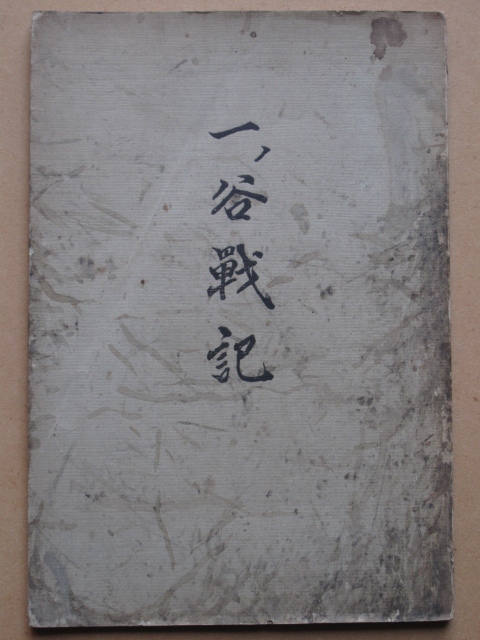 一ノ谷戰記